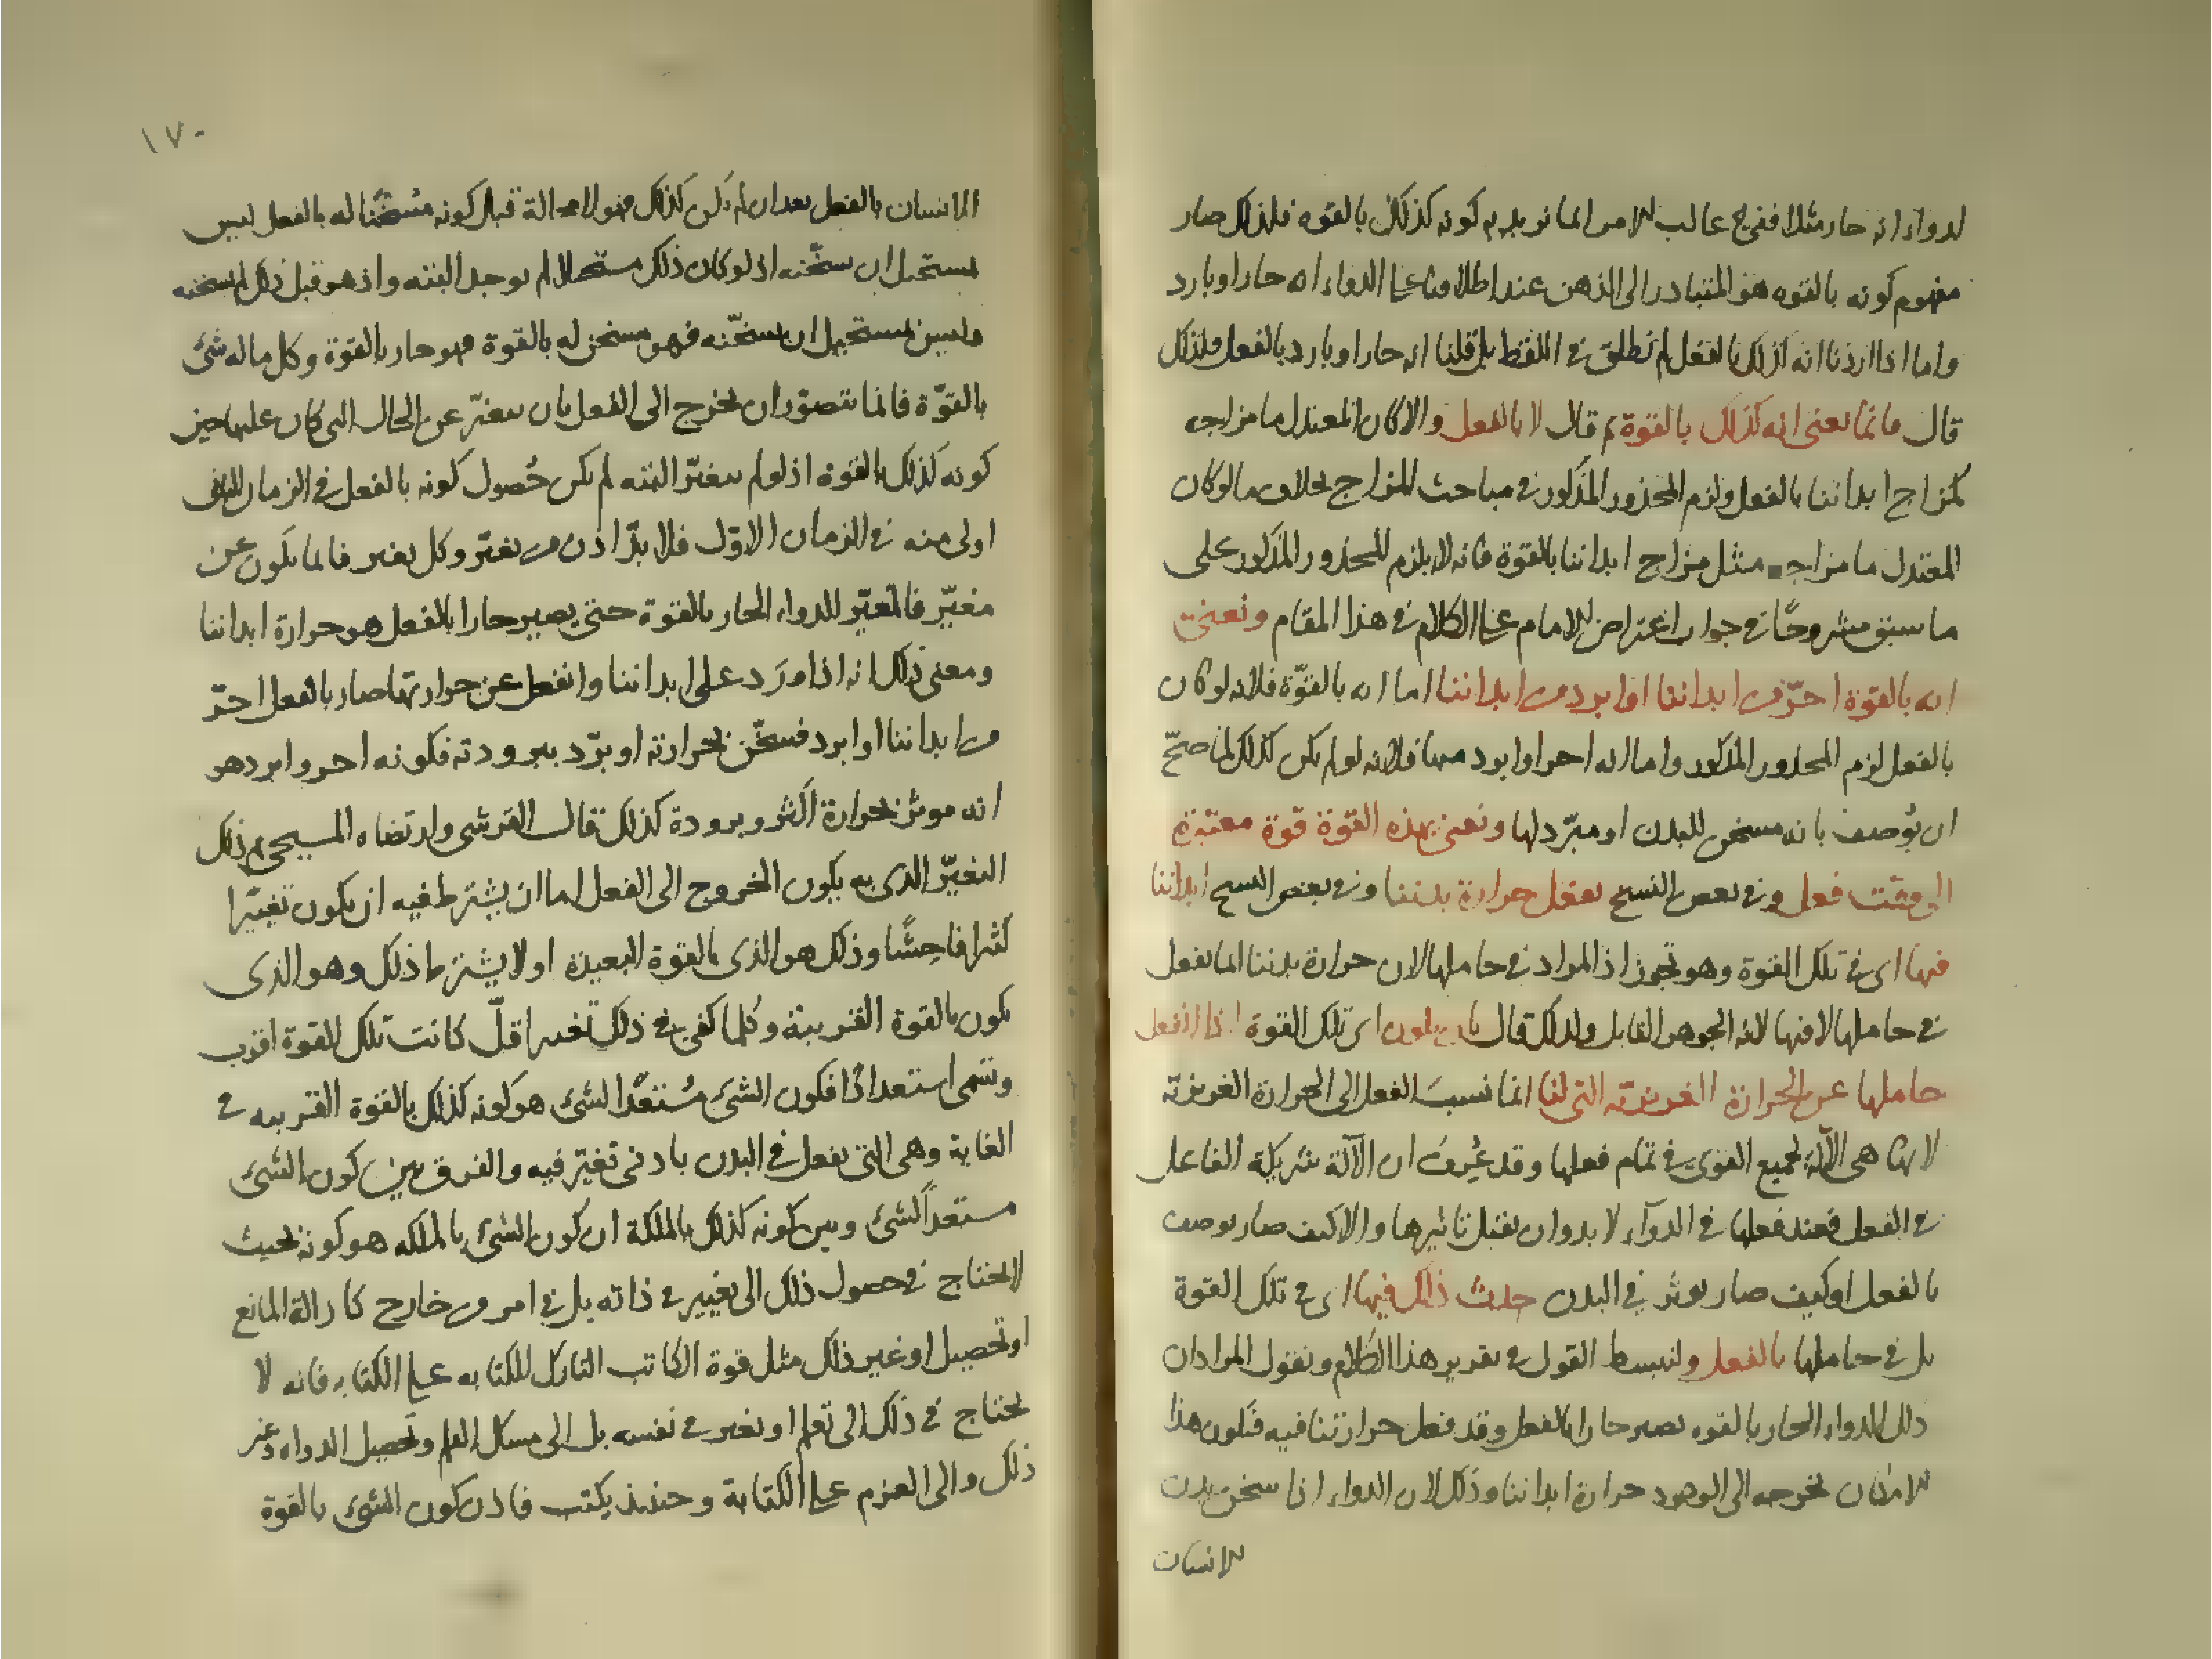 لدواء انه حار مثلا ففى غالب الامر انما نريد به كونه كذلك بالقوه فلذلك صار
مفهوم كونه بالقوه هو المتبادر الى الذهن عند اطلاقنا على الدواء انه حار او بارد
واما اذا اردنا انه كذلك بالفعل لم نطلق فى اللفظ بل قلنا انه حار او بارد بالفعل ولذلك
قال فانما نعنى انه كذلك بالقوة ثم قال لا بالفعل والا كان المعتدل ما مزاجه
كمزاج ابداننا بالفعل ولزم المحذور المذكور فى مباحث المزاج بخلاف ما لو كان
المعتدل ما مزاجه مثل مزاج ابداننا بالقوة فانه لا يلزم المحذور المذكور على
ما سبق مشروحًا فى جواب اعتراض الامام على الكلام فى هذا المقام ونعنى
انه بالقوة احرّ من ابداننا او ابرد من ابداننا اما انه بالقوّة فلانه لو كان
بالفعل لزم المحذور المذكور واما انه احر او ابرد منها فلانه لو لم يكن كذلك لما صحّ
ان يُوصف بانه مسخن للبدن او مبرّد لها ونعنى بهذه القوة قوة معتبرة
الى وقت فعل وفى بعض النسخ بفعل حرارة بدننا وفى بعض النسخ ابداننا
فيها اى فى تلك القوة وهو تجوز اذ المراد فى حاملها لان حرارة بدننا انما تفعل
فى حاملها لا فيها لانه الجوهر القابل ولذلك قال بان يكون اى تلك القوة اذا انفعل
حاملها عن الحرارة الغريزيّة التى لنا انما نسبَ الفعل الى الحرارة الغريزيّة
لانها هى الآلة لجميع القوى فى تمام فعلها وقد عُرف ان الآلة شريكة الفاعل
فى الفعل فعند فعلها فى الدوآء لا بد وان يقبل تاثيرها والا كيف صار يوصف
بالفعل او كيف صار يوثر فى البدن حدث ذلك فيها اى فى تلك القوة
بل فى حاملها بالفعل ولنبسط القول فى تقرير هذا الكلام ونقول المراد ان
ذلك الدواء الحار بالقوه يصير حارا بالفعل وقد فعل حرارتنا فيه فتكون هذا
الامكان يخرجه الى الوجود حرارة ابداننا وذلك لان الدواء اذا سخن بدن
الانسان
١٧٠
الانسان بالفعل بعد ان لم يكن كذلك فهو لا محالة قبل كونه مسخّنا له بالفعل ليس
يستحيل ان يسخّنه اذ لو كان ذلك مستحيلا لم يوجد البته واذ هو قبل ذلك لم يسخنه
وليس يستحيل ان يسخّنه فهو مسخن له بالقوة فهو حار بالقوة وكل ما له شئ
بالقوّة فانما يتصوّر ان يخرج الى الفعل بان يتغيّر عن الحال التى كان عليها حين
كونه كذلك بالقوة اذ لو لم يتغيّر البته لم يكن حُصول كونه بالفعل فى الزمان الثانى
اولى منه فى الزمان الاوّل فلا بدّ اذن من تغيّر وكل تغير فانما يكون عن
مغيّر فالمغيّر للدواء الحار بالقوة حتى يصير حارا بالفعل هو حرارة ابداننا
ومعنى ذلك انه اذا وَرَد على ابداننا وانفعل عن حرارتها صار بالفعل احرّ
من ابداننا او ابرد فسخّن بحرارته او برّد ببرودته فكونه احر وابرد هو
انه موثر بحرارة اكثر وبرودة كذلك قال القرشى وارتضاه المسيحى ثم ذلك
التغيّر الذى به يكون الخروج الى الفعل اما ان يشترط فيه ان يكون تغيّرا
كثيرا فاحشًا وذلك هو الذى بالقوة البعيدة او لا يشترط ذلك وهو الذى
يكون بالقوة القريبة وكلما كفى فى ذلك تغير اقلّ كانت تلك القوة اقرب
وتسمى استعدادًا فكون الشئ مُستعدًّا لشئ هو كونه كذلك بالقوة القريبه فى
الغاية وهى التى تفعل فى البدن بادنى تغيّر فيه والفرق بين كون الشئ
مستعداً لشئ وبين كونه كذلك بالملكة ان كون الشئ بالملكه هو كونه بحيث
لا يحتاج فى حصول ذلك الى تغيير فى ذاته بل فى امر من خارج كازالة المانع
او تحصيل او غير ذلك مثل قوة الكاتب التارك للكتابه على الكتابه فانه لا
يحتاج فى ذلك الى تعلم او تغير فى نفسه بل الى مسك القلم وتحصيل الدواه وغير
ذلك والى العزم على الكتابة وحينئذ يكتب فاذن كون الشئ بالقوة